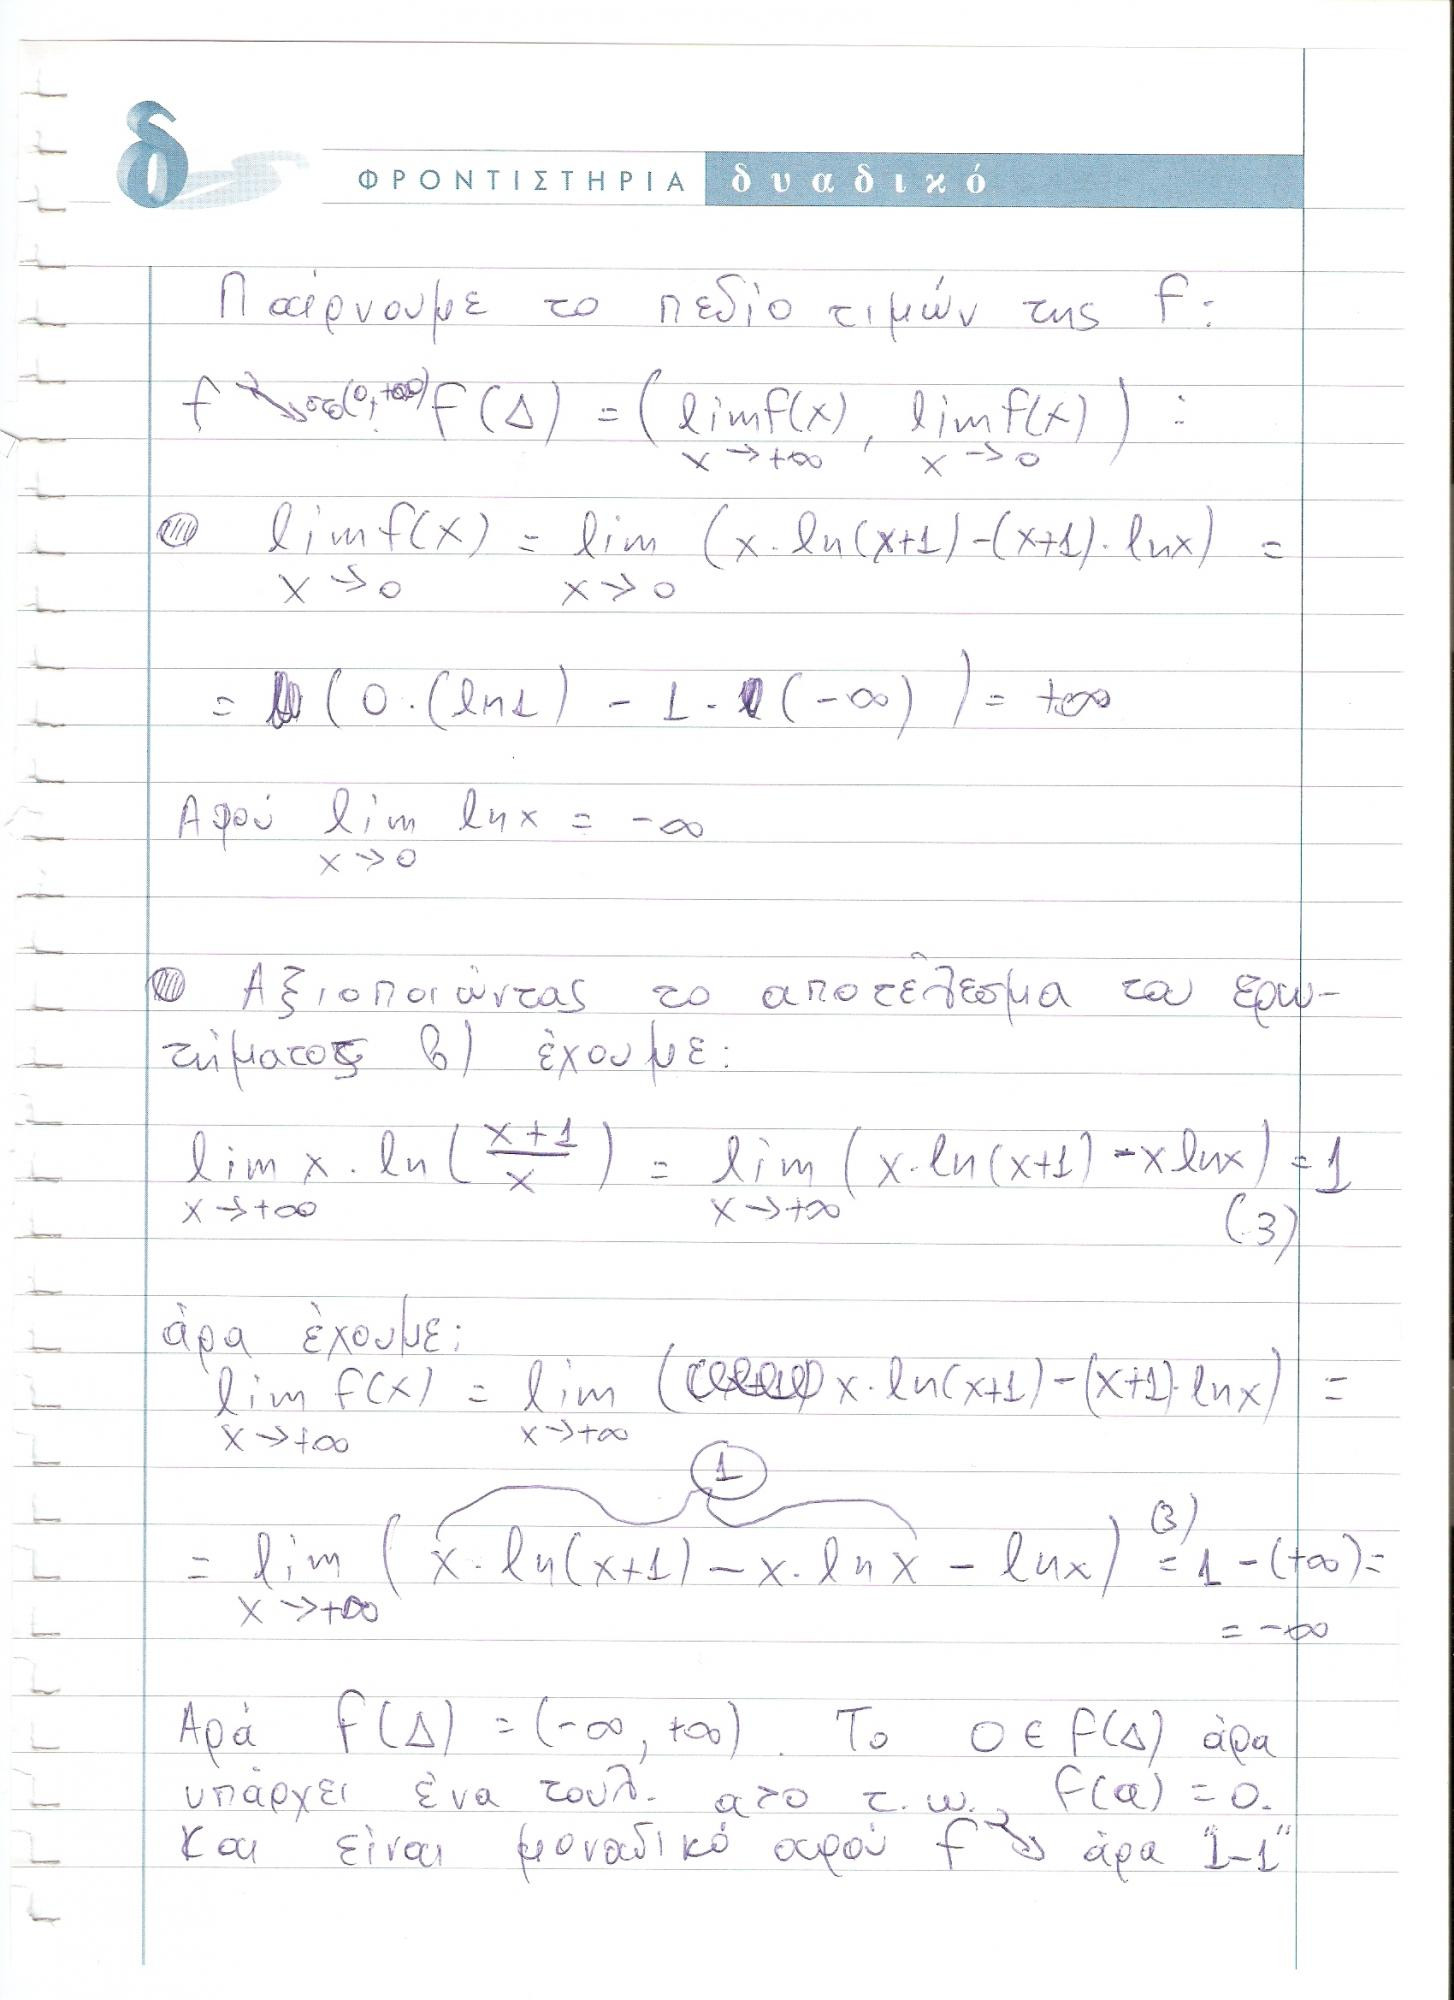 δ ΦΡΟΝΤΙΣΤΗΡΙΑ δυαδικό
Παίρνουμε το πεδίο τιμών της f:
f ↘ στο (0,+∞) f(Δ) = (lim f(x), lim f(x)) :
x→+∞ x→0
lim f(x) = lim (x·ln(x+1)-(x+1)·lnx) =
x→0 x→0
= (0·(ln1) - 1·(-∞)) = +∞
Αφού lim lnx = -∞
x→0
Αξιοποιώντας το αποτέλεσμα του ερω-
τήματος β) έχουμε:
lim x·ln(x+1/x) = lim (x·ln(x+1) - x lnx) = 1
x→+∞ x→+∞ (3)
άρα έχουμε:
lim f(x) = lim (x·ln(x+1)-(x+1)·lnx) =
x→+∞ x→+∞
1
= lim (x·ln(x+1) - x·lnx - lnx) (3)= 1-(+∞) =
x→+∞ = -∞
Αρά f(Δ) = (-∞, +∞). Το 0 ∈ f(Δ) άρα
υπάρχει ένα τουλ. α>0 τ.ω. f(α) = 0.
Και είναι μοναδικό αφού f ↘ άρα "1-1"